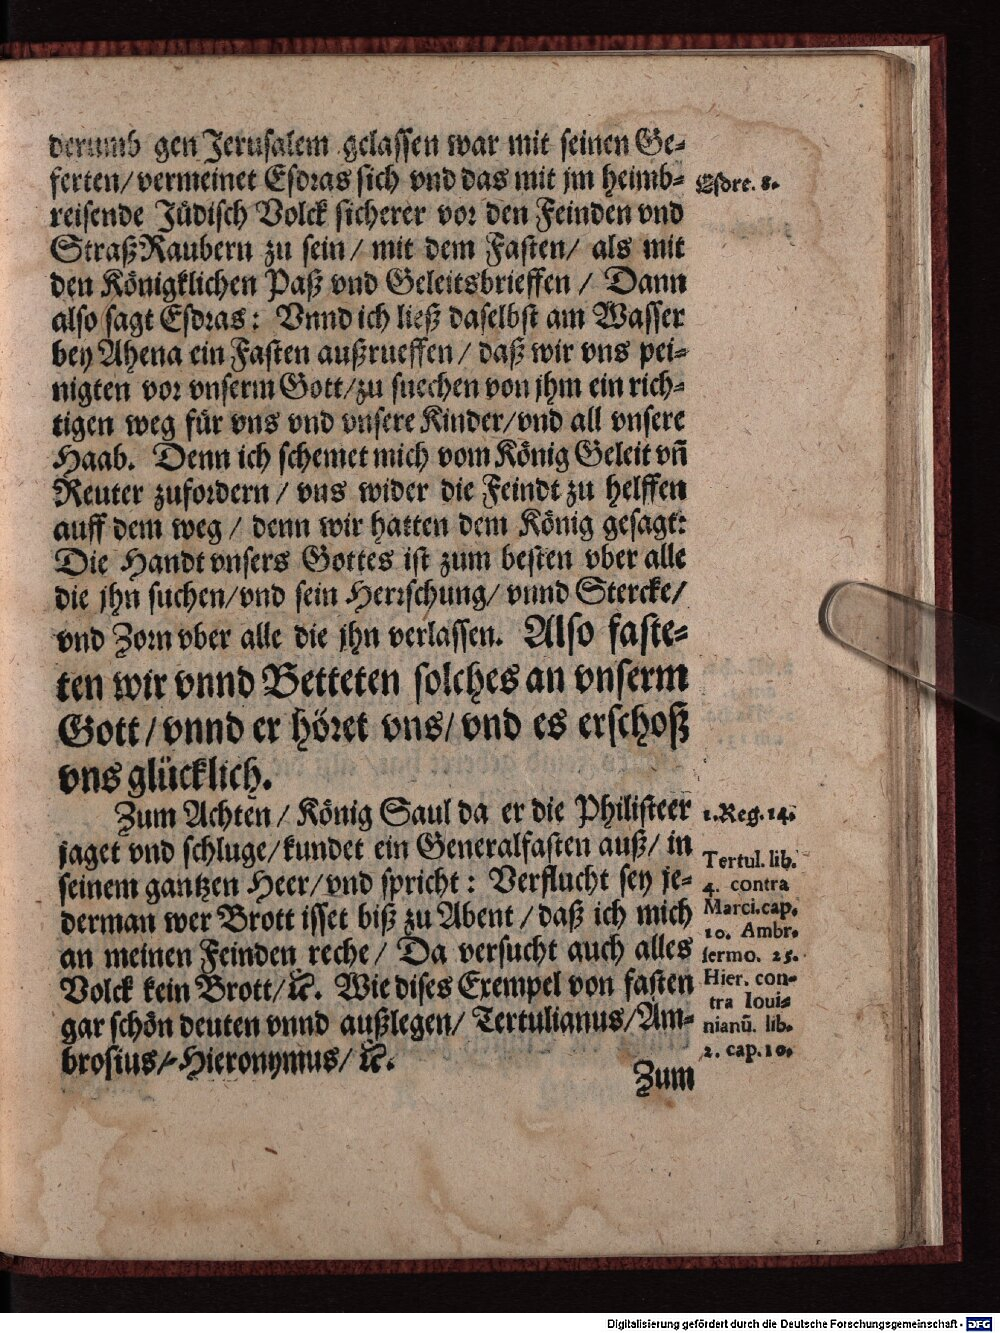 derumb gen Jerusalem gelassen war mit seinen Ge-
ferten/vermeinet Esdras sich vnd das mit jm heimb-
Esdre. 8.
reisende Jüdisch Volck sicherer vor den Feinden vnd
StraßRaubern zu sein/ mit dem Fasten/ als mit
den Königklichen Paß vnd Geleitsbrieffen / Dann
also sagt Esdras: Vnnd ich ließ daselbst am Wasser
bey Ahena ein Fasten außrueffen/ daß wir vns pei-
nigten vor vnserm Gott/zu suechen von jhm ein rich-
tigen weg für vns vnd vnsere Kinder/vnd all vnsere
Haab. Denn ich schemet mich vom König Geleit vñ
Reuter zufordern/ vns wider die Feindt zu helffen
auff dem weg/ denn wir hatten dem König gesagt:
Die Handt vnsers Gottes ist zum besten vber alle
die jhn suchen/vnd sein Herrschung/ vnnd Stercke/
vnd Zorn vber alle die jhn verlassen. Also faste-
ten wir vnnd Betteten solches an vnserm
Gott/vnnd er höret vns/vnd es erschoß
vns glücklich.
Zum Achten/ König Saul da er die Philisteer
1.Reg.14.
jaget vnd schluge/kundet ein Generalfasten auß/ in
seinem gantzen Heer/vnd spricht: Verflucht sey je-
derman wer Brott isset biß zu Abent/daß ich mich
an meinen Feinden reche/ Da versucht auch alles
Volck kein Brott/ꝛc. Wie dises Exempel von fasten
gar schön deuten vnnd außlegen/ Tertulianus/Am-
brosius/Hieronymus/ꝛc.
Tertul. lib.
4. contra
Marci.cap.
10. Ambr.
sermo. 25.
Hier. con-
tra Ioui-
nianū. lib.
2. cap.10.
Zum
Digitalisierung gefördert durch die Deutsche Forschungsgemeinschaft - DFG